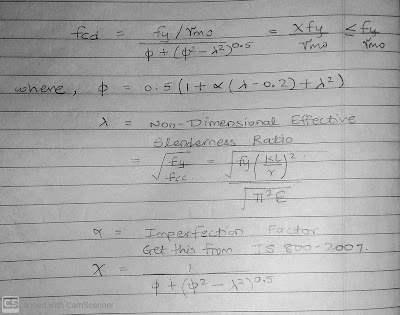 fcd = fy / γmo / φ + (φ² − λ²)^0.5 = χfy / γmo ≤ fy / γmo
where, φ = 0.5 (1 + α (λ − 0.2) + λ²)
λ = Non-Dimensional Effective
Slenderness Ratio
= √(fy / fcc) = √(fy (KL / r)²) / √(π²E)
α = Imperfection Factor
Get this from IS 800-2007.
χ = 1 / φ + (φ² − λ²)^0.5
CS Scanned with CamScanner